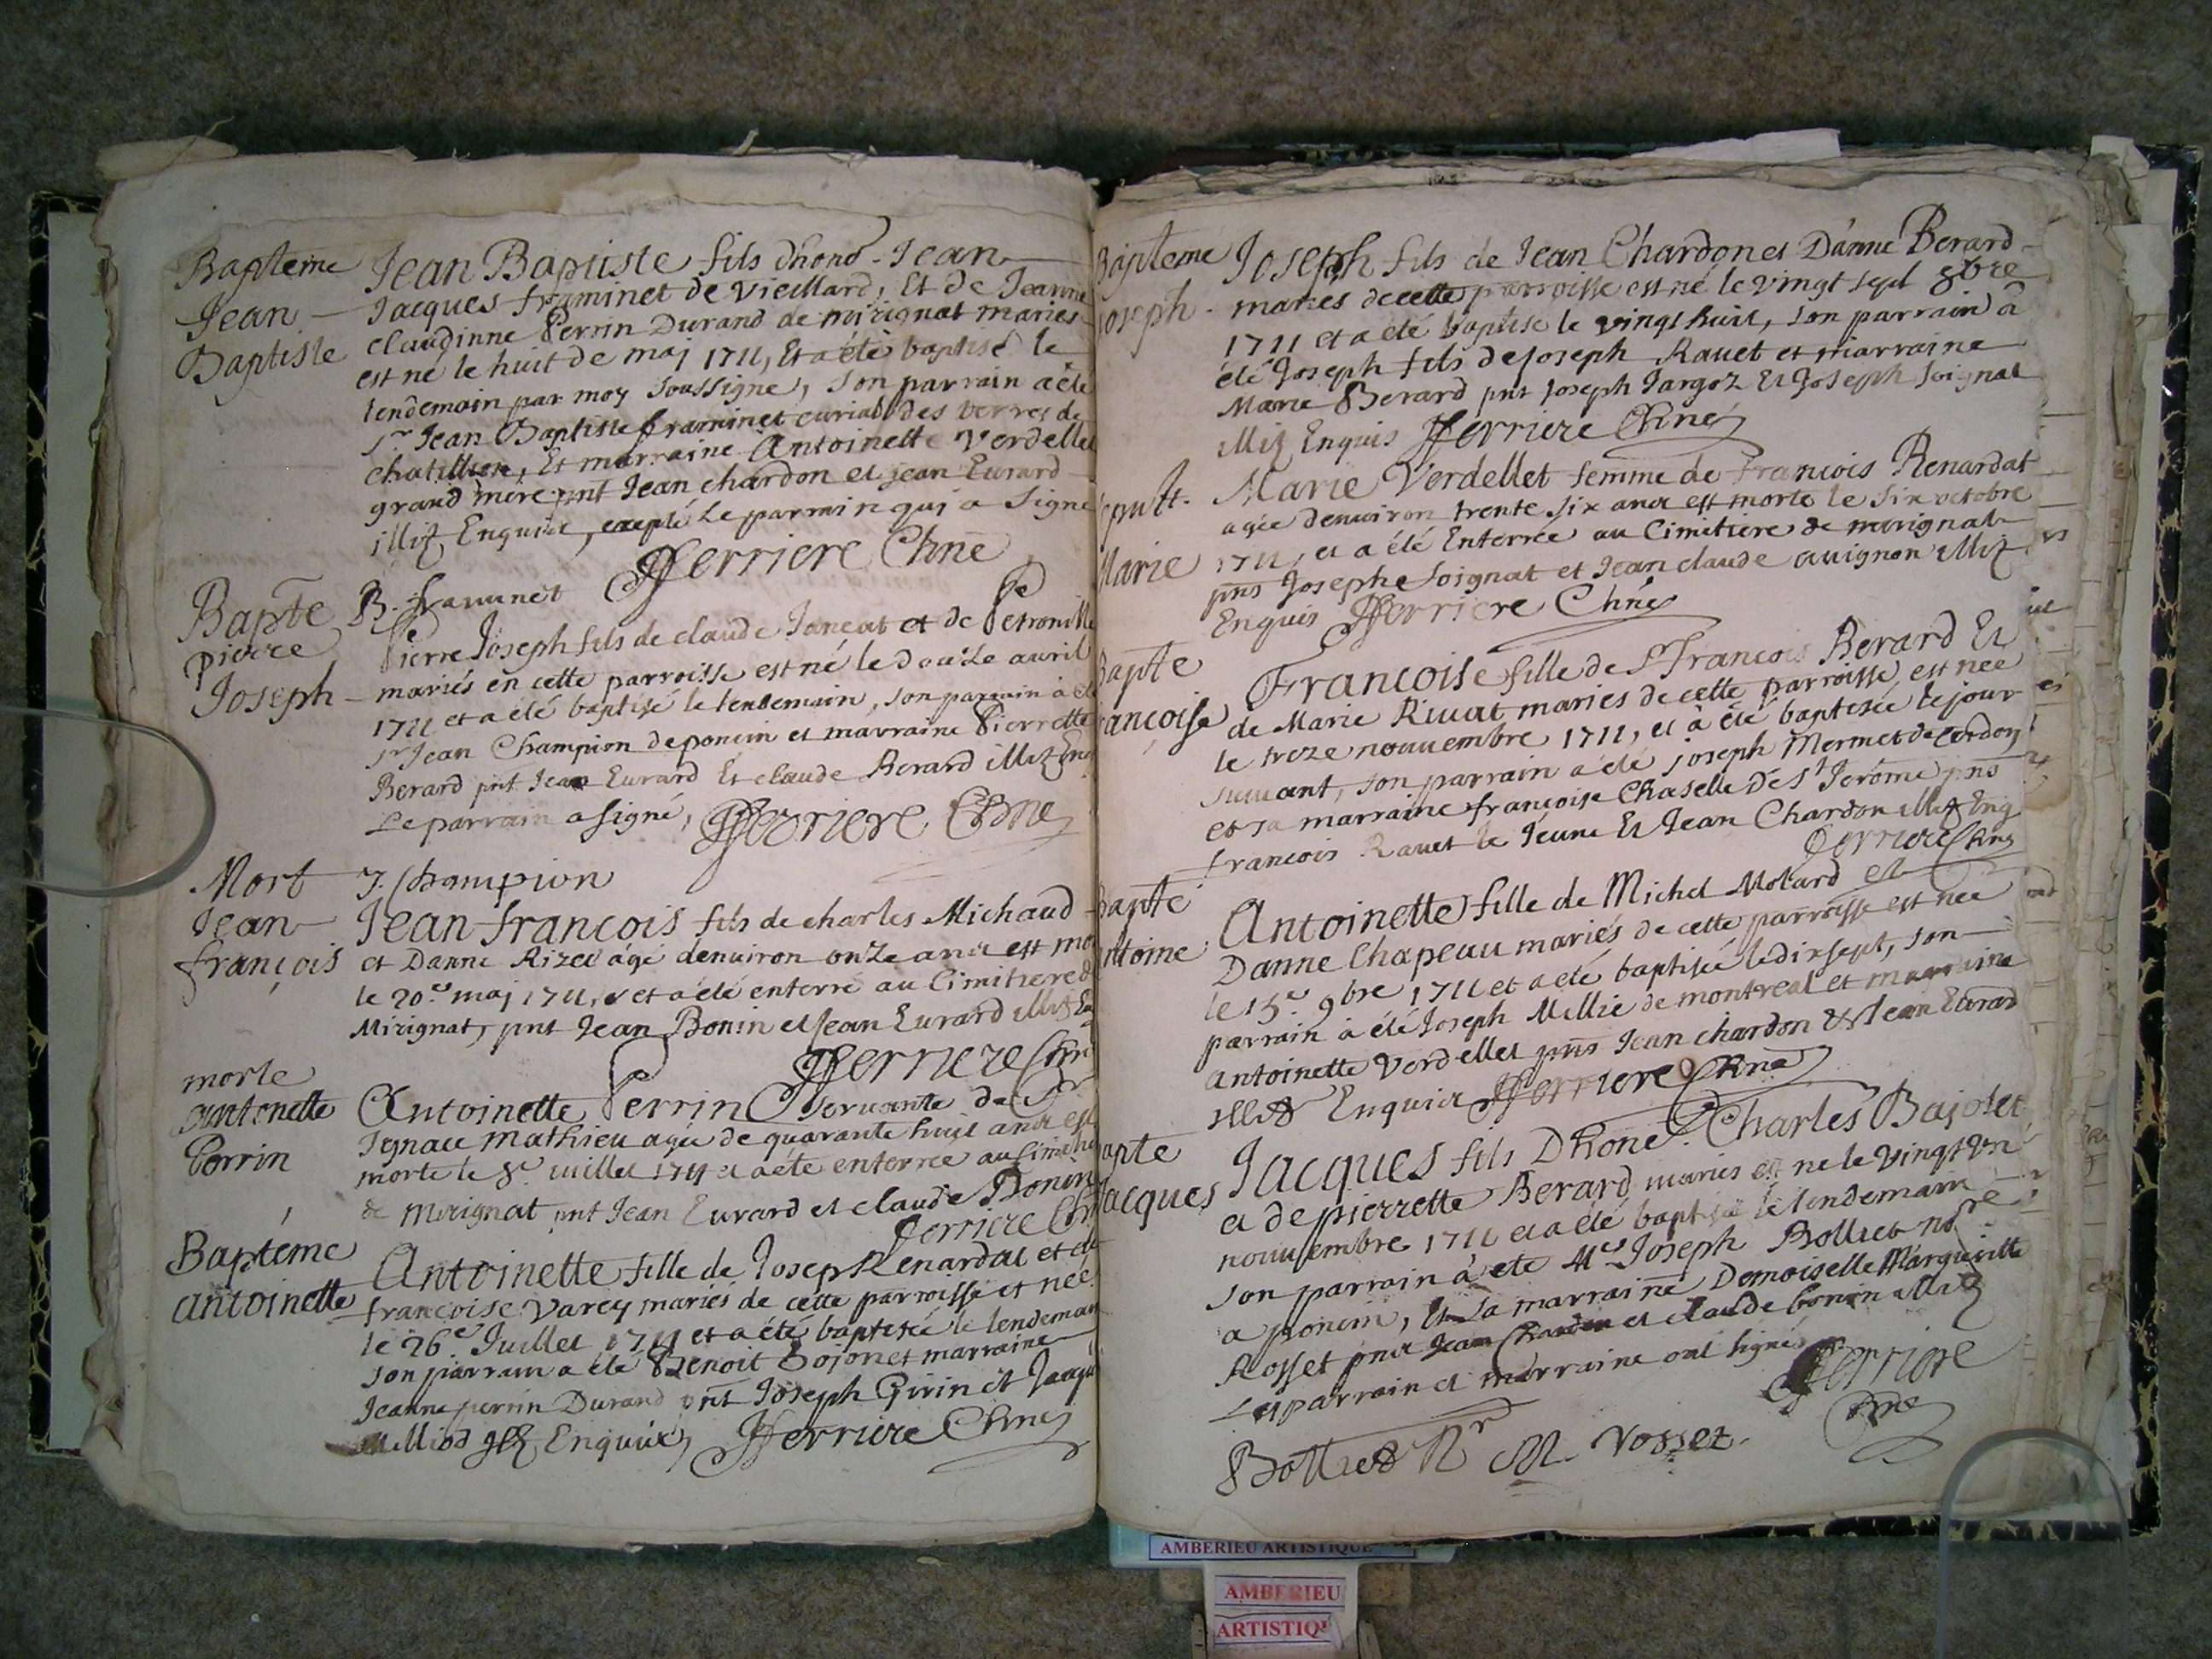 Bapteme
Jean
Baptiste
Jean Baptiste fils dhono. Jean
Jacques framinet de vieillard, Et de Jeanne
claudinne Perrin Durand de mirignat maries
est né le huit de maj 1711, Et a été baptisé le
lendemain par moy soussigné, son parrain a été
sr Jean Baptiste framinet curial des terres de
chatillon, Et marraine Antoinette Verdellet
grand mere pnt Jean chardon et jean Eurard
illit Enquis, excepté Le parrain qui a Signé
fferriere Chne
B. framinet
Bapte
pierre
Joseph
Pierre Joseph fils de claude Jancat et de Petronille
mariés en cette parroisse est né le douze auril
1711 et a été baptisé le lendemain, son parrain a été
sr Jean Champion de poncin et marraine Pierrette
Berard pnt Jean Eurard Et claude Berard illit Enq
Le parrain a signé, fferriere Chne
J. Champion
Mort
Jean
françois
Jean-françois fils de charles Michaud
et Danne Rizet agé denuiron onze ans est mo
le 20e maj 1711, et a été enterré au Cimitiere de
Mirignat, pnt Jean Bonin et Jean Eurard illit En
fferriere Chne
morte
antonette
Perrin
Antoinette Perrin Seruante de Sr
Ignace mathieu agée de quarante huit ans est
morte le 8e iuillet 1711 et a été enterrée au Cimetie
de Mirignat pnt Jean Eurard et claude Bonin
ferriere Chn
Bapteme
antoinette
Antoinette fille de Joseph Renardat et de
françoise Varey mariés de cette parroisse et née
le 26e Juillet 1711 et a été baptisée le lendemain
son parrain a été Benoit Bojon et marraine
Jeanne perrin Durand pnt Joseph Girin et Jaqu
Milliod Enquis, fferriere Chne
Bapteme
Joseph
Joseph fils de Jean Chardon et Danne Berard
maries de cette parroisse est né le vingt sept 8bre
1711 et a été baptisé le vingt huit, son parrain a
été Joseph fils de Joseph Rauet et marraine
Marie Berard pnt Joseph Jargoz Et Joseph Soignat
illit Enquis fferriere Chne
epult.
Marie
Marie Verdellet femme de francois Renardat
agée denuiron trente six ans est morte le six octobre
1711, et a été Enterrée au Cimetiere de mirignat
pns Josephe Soignat et Jean claude auignon illit
Enquis fferriere Chne
Bapte
ançoise
Françoise fille de Sr François Berard Et
de Marie Riuat maries de cette parroisse, est née
le treze nouuembre 1711, et à été baptisée le jour
suiuant, son parrain a été joseph Mermet de cerdon
et sa marraine françoise Chaselle De St Jerôme pns
francois Rauet le Jeune Et Jean Chardon illit Enq
ferriere Chne
Bapte
ntoine
Antoinette fille de Michel Molard et
Danne Chapeau mariés de cette parroisse est née
le 15e 9bre 1711 et a été baptisée le dixsept, son
parrain a été Joseph Millie de montreal et marraine
antoinette Verdellet pns Jean chardon & Jean Eurard
illit Enquis fferriere Chne
apte
Jacques
Jacques fils Dhone. Charles Bajolet
et de pierrette Berard maries est né le vingt vn
nouuembre 1711 et a été baptisé le lendemain
son parrain a été Me Joseph Bolliet nore
a poncin, Et sa marraine Demoiselle Marguerite
Rosset pnts Jean Chardon et claude bonin illit
Le parrain et marraine ont signés fferriere
Chne
Bolliet Nr M. Rosset.
AMBERIEU ARTISTIQUE
AMBERIEU
ARTISTIQU